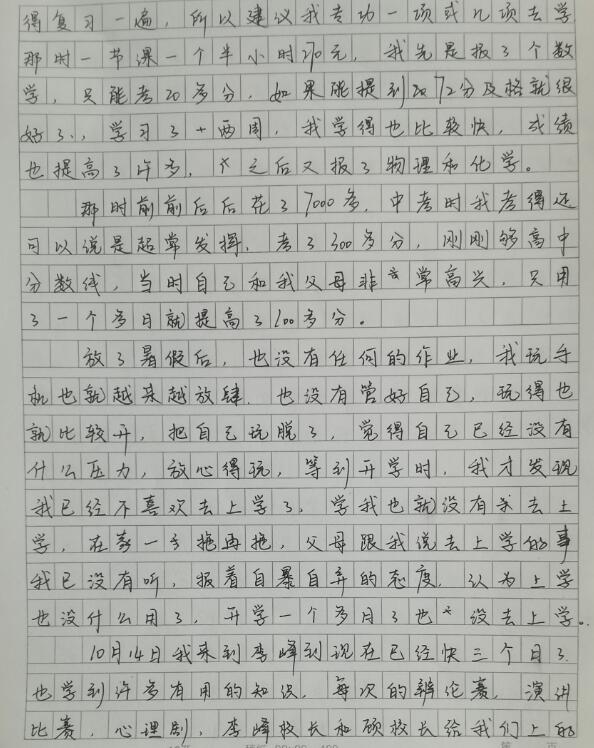 得复习一遍，所以建议我专功一项或几项去学
那时一节课一个半小时270元，我先是报了个数
学，只能考20多分，如果能提到72分及格就很
好了，学习了十两周，我学得也比较快，成绩
也提高了许多，之后又报了物理和化学。
那时前前后后花了7000多，中考时我考得还
可以说是超常发挥，考了300多分，刚刚够高中
分数线，当时自己和我父母非常高兴，只用
了一个多月就提高了100多分。
放了暑假后，也没有任何的作业，我玩手
机也就越来越放肆，也没有管好自己，玩得也
就比较开，把自己玩脱了，觉得自己已经没有
什么压力，放心得玩，等到开学时，我才发现
我已经不喜欢去上学了，学我也就没有去上
学，在家一拖再拖，父母跟我说去上学的事
我已没有听，报着自暴自弃的态度，认为上学
也没什么用了，开学一个多月了也没去上学。
10月14日我来到李峰到现在已经快三个日了
也学到许多有用的知识，每次的辨伦赛，演讲
比赛，心理剧，李峰校长和顾校长给我们上的